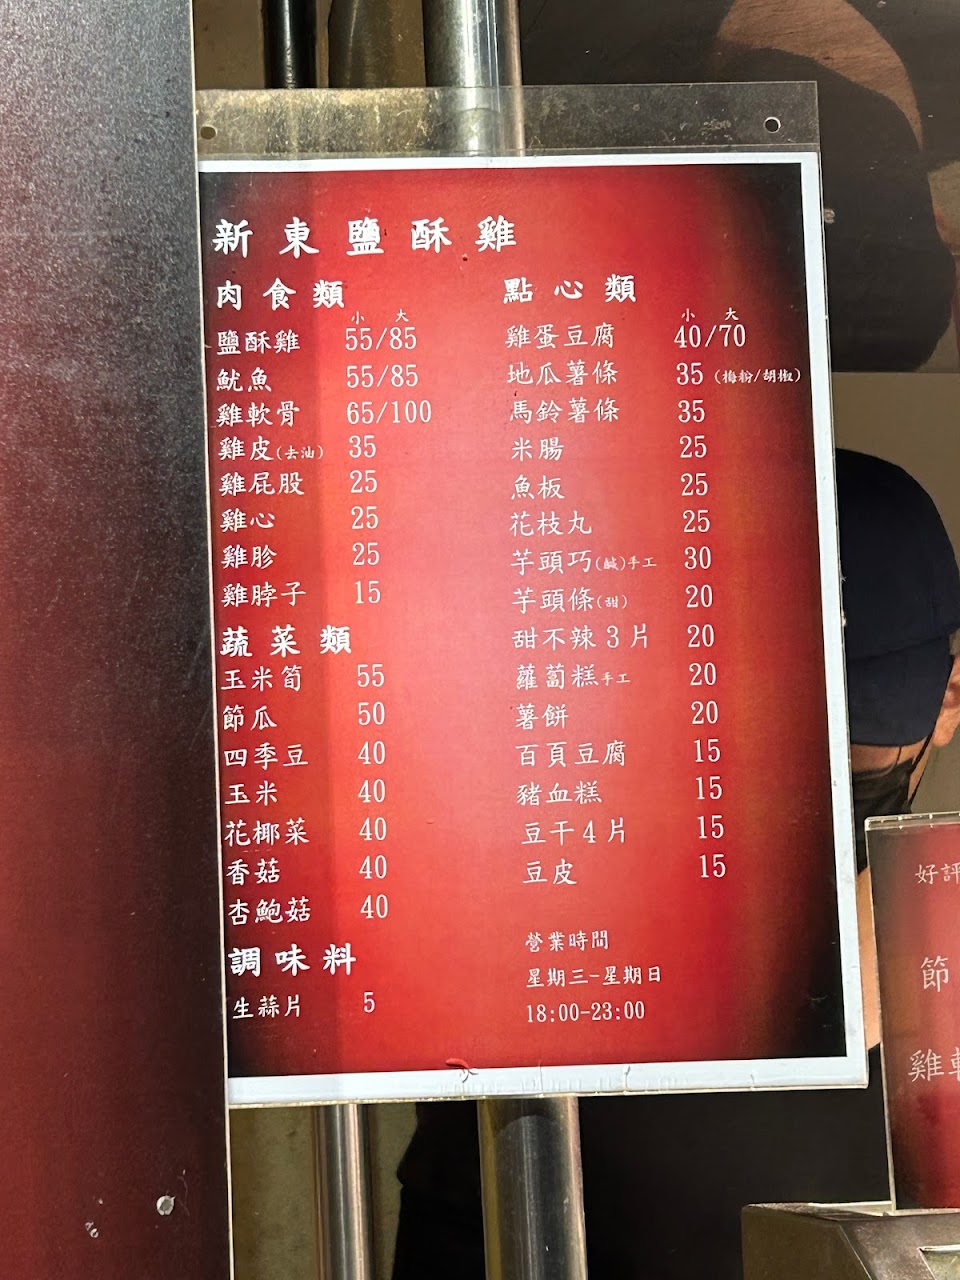 新東鹽酥雞
肉食類
小 大
鹽酥雞 55/85
魷魚 55/85
雞軟骨 65/100
雞皮(去油) 35
雞屁股 25
雞心 25
雞胗 25
雞脖子 15
蔬菜類
玉米筍 55
節瓜 50
四季豆 40
玉米 40
花椰菜 40
香菇 40
杏鮑菇 40
調味料
生蒜片 5
點心類
小 大
雞蛋豆腐 40/70
地瓜薯條 35 (梅粉/胡椒)
馬鈴薯條 35
米腸 25
魚板 25
花枝丸 25
芋頭巧(鹹)手工 30
芋頭條(甜) 20
甜不辣3片 20
蘿蔔糕手工 20
薯餅 20
百頁豆腐 15
豬血糕 15
豆干4片 15
豆皮 15
營業時間
星期三-星期日
18:00-23:00
好評
節
雞軟